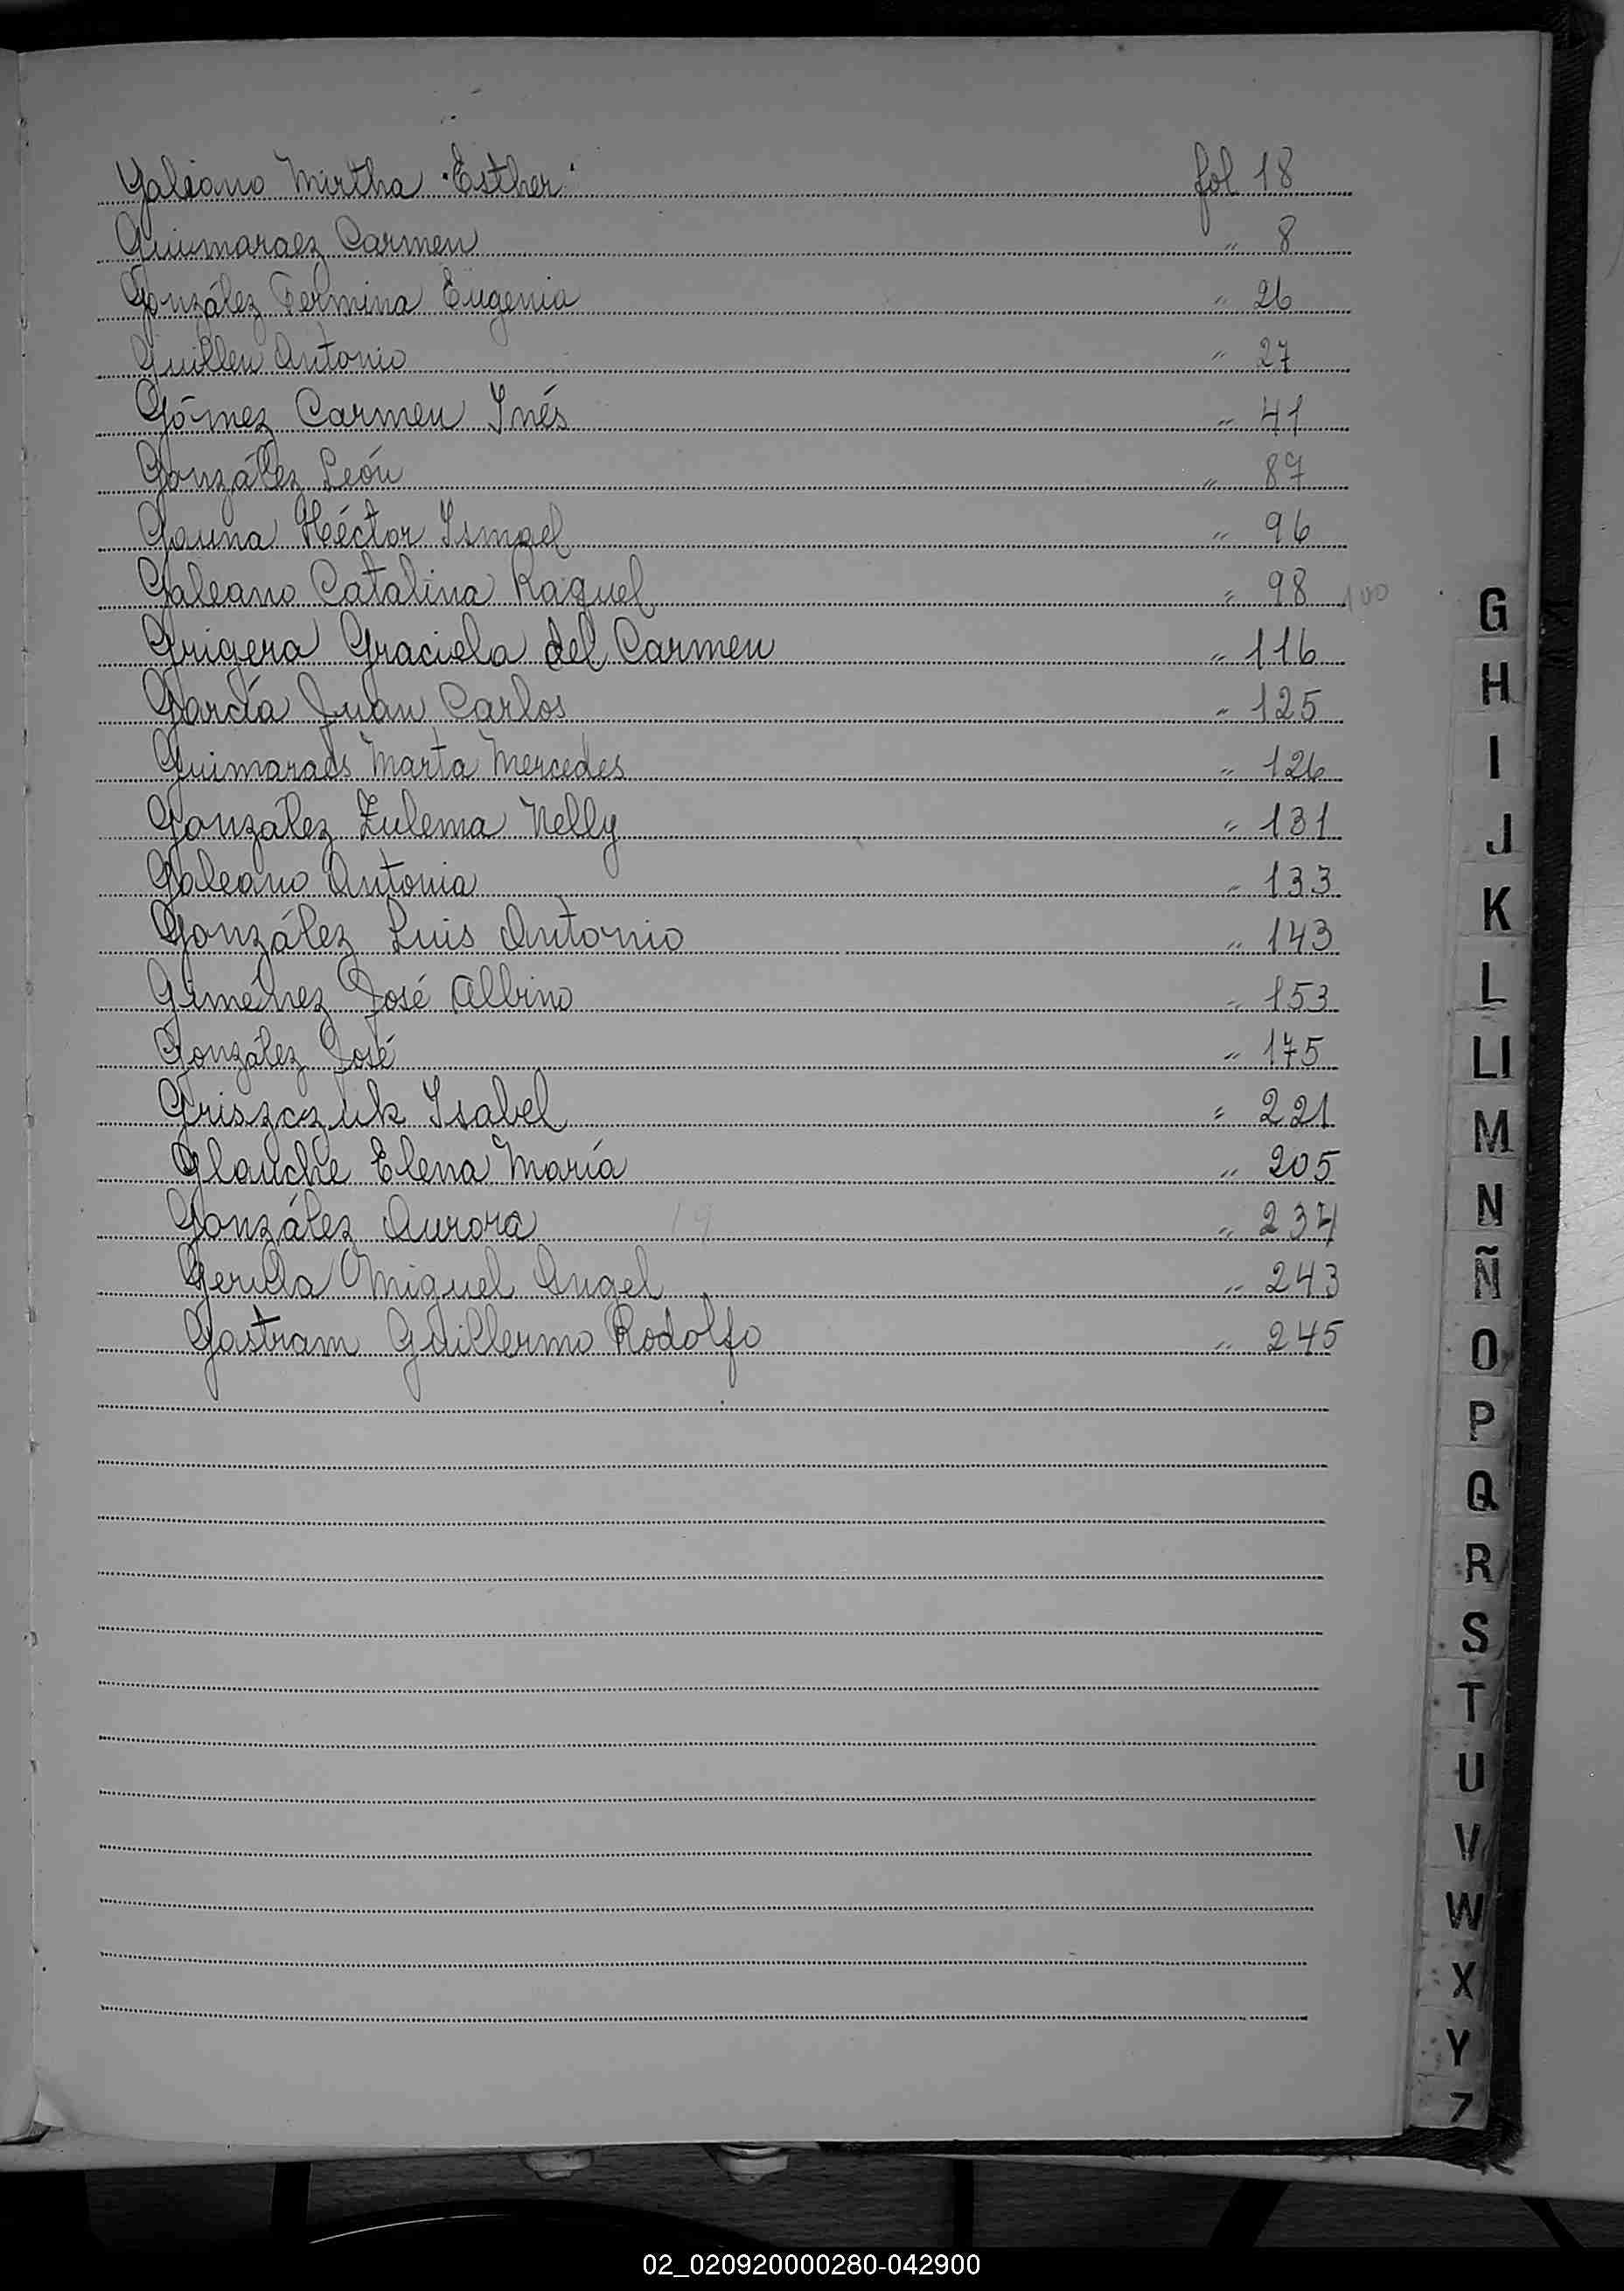 Galeano Mirtha "Esther" fol 18
Guimaraez Carmen " 8
González Fermina Eugenia " 26
Guillen Antonio " 27
Gómez Carmen Inés " 41
González León " 87
Gauna Héctor Ismael " 96
Galeano Catalina Raquel " 98 100
Grigera Graciela del Carmen " 116
García Juan Carlos " 125
Guimaraes Marta Mercedes " 126
González Zulema Nelly " 131
Galeano Antonia " 133
González Luis Antonio " 143
Giménez José Albino " 153
González José " 175
Griszczuk Isabel " 221
Glauche Elena María " 205
González Aurora " 234
Gerula Miguel Angel " 243
Gastram Guillermo Rodolfo " 245
G
H
I
J
K
L
Ll
M
N
Ñ
O
P
Q
R
S
T
U
V
W
X
Y
Z
02_020920000280-042900